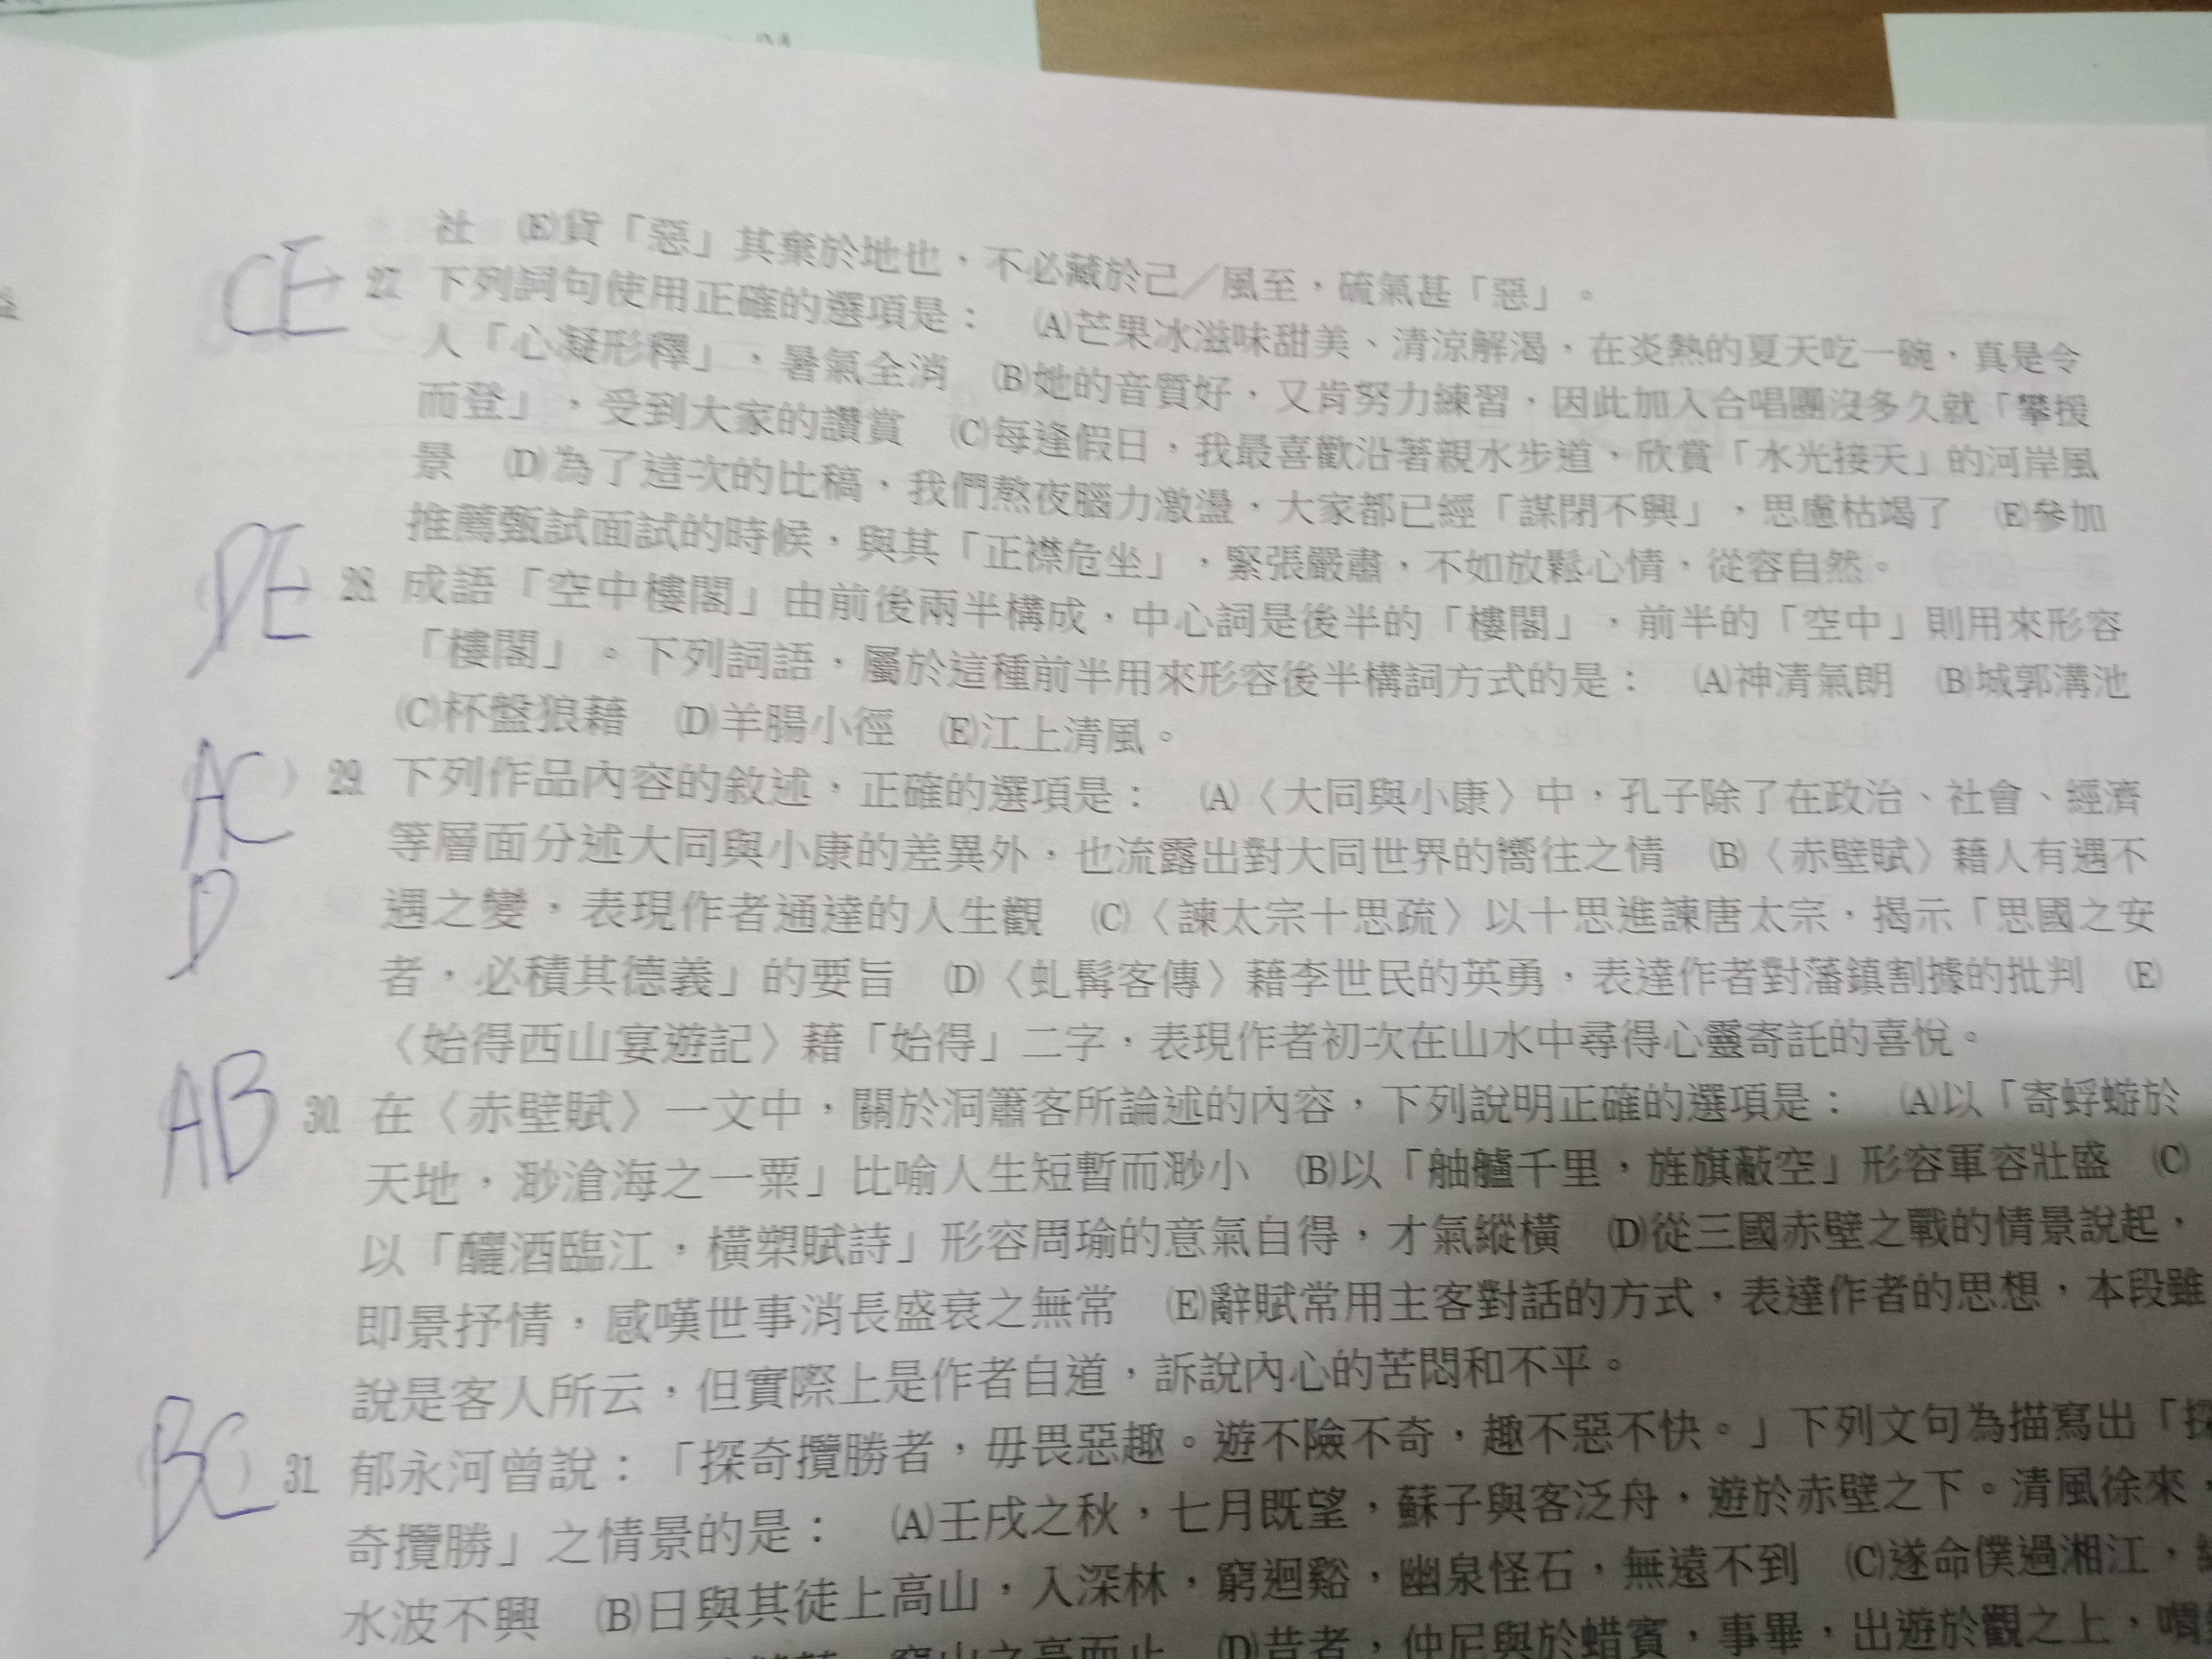 社 (E)貨「惡」其棄於地也，不必藏於己／風至，硫氣甚「惡」。
CE 27. 下列詞句使用正確的選項是： (A)芒果冰滋味甜美、清涼解渴，在炎熱的夏天吃一碗，真是令
人「心凝形釋」，暑氣全消 (B)她的音質好，又肯努力練習，因此加入合唱團沒多久就「攀援
而登」，受到大家的讚賞 (C)每逢假日，我最喜歡沿著親水步道，欣賞「水光接天」的河岸風
景 (D)為了這次的比稿，我們熬夜腦力激盪，大家都已經「謀閉不興」，思慮枯竭了 (E)參加
推薦甄試面試的時候，與其「正襟危坐」，緊張嚴肅，不如放鬆心情，從容自然。
(DE) 28. 成語「空中樓閣」由前後兩半構成，中心詞是後半的「樓閣」，前半的「空中」則用來形容
「樓閣」。下列詞語，屬於這種前半用來形容後半構詞方式的是： (A)神清氣朗 (B)城郭溝池
(C)杯盤狼藉 (D)羊腸小徑 (E)江上清風。
AC) 29. 下列作品內容的敘述，正確的選項是： (A)〈大同與小康〉中，孔子除了在政治、社會、經濟
等層面分述大同與小康的差異外，也流露出對大同世界的嚮往之情 (B)〈赤壁賦〉藉人有遇不
D
遇之變，表現作者通達的人生觀 (C)〈諫太宗十思疏〉以十思進諫唐太宗，揭示「思國之安
者，必積其德義」的要旨 (D)〈虬髯客傳〉藉李世民的英勇，表達作者對藩鎮割據的批判 (E)
〈始得西山宴遊記〉藉「始得」二字，表現作者初次在山水中尋得心靈寄託的喜悅。
AB 30. 在〈赤壁賦〉一文中，關於洞簫客所論述的內容，下列說明正確的選項是： (A)以「寄蜉蝣於
天地，渺滄海之一粟」比喻人生短暫而渺小 (B)以「舳艫千里，旌旗蔽空」形容軍容壯盛 (C)
以「釃酒臨江，橫槊賦詩」形容周瑜的意氣自得，才氣縱橫 (D)從三國赤壁之戰的情景說起，
即景抒情，感嘆世事消長盛衰之無常 (E)辭賦常用主客對話的方式，表達作者的思想，本段雖
說是客人所云，但實際上是作者自道，訴說內心的苦悶和不平。
(BC) 31. 郁永河曾說：「探奇攬勝者，毋畏惡趣。遊不險不奇，趣不惡不快。」下列文句為描寫出「探
奇攬勝」之情景的是： (A)壬戌之秋，七月既望，蘇子與客泛舟，遊於赤壁之下。清風徐來，
水波不興 (B)日與其徒上高山，入深林，窮迴谿，幽泉怪石，無遠不到 (C)遂命僕過湘江，
窮山之高而止 (D)昔者，仲尼與於蜡賓，事畢，出遊於觀之上，喟